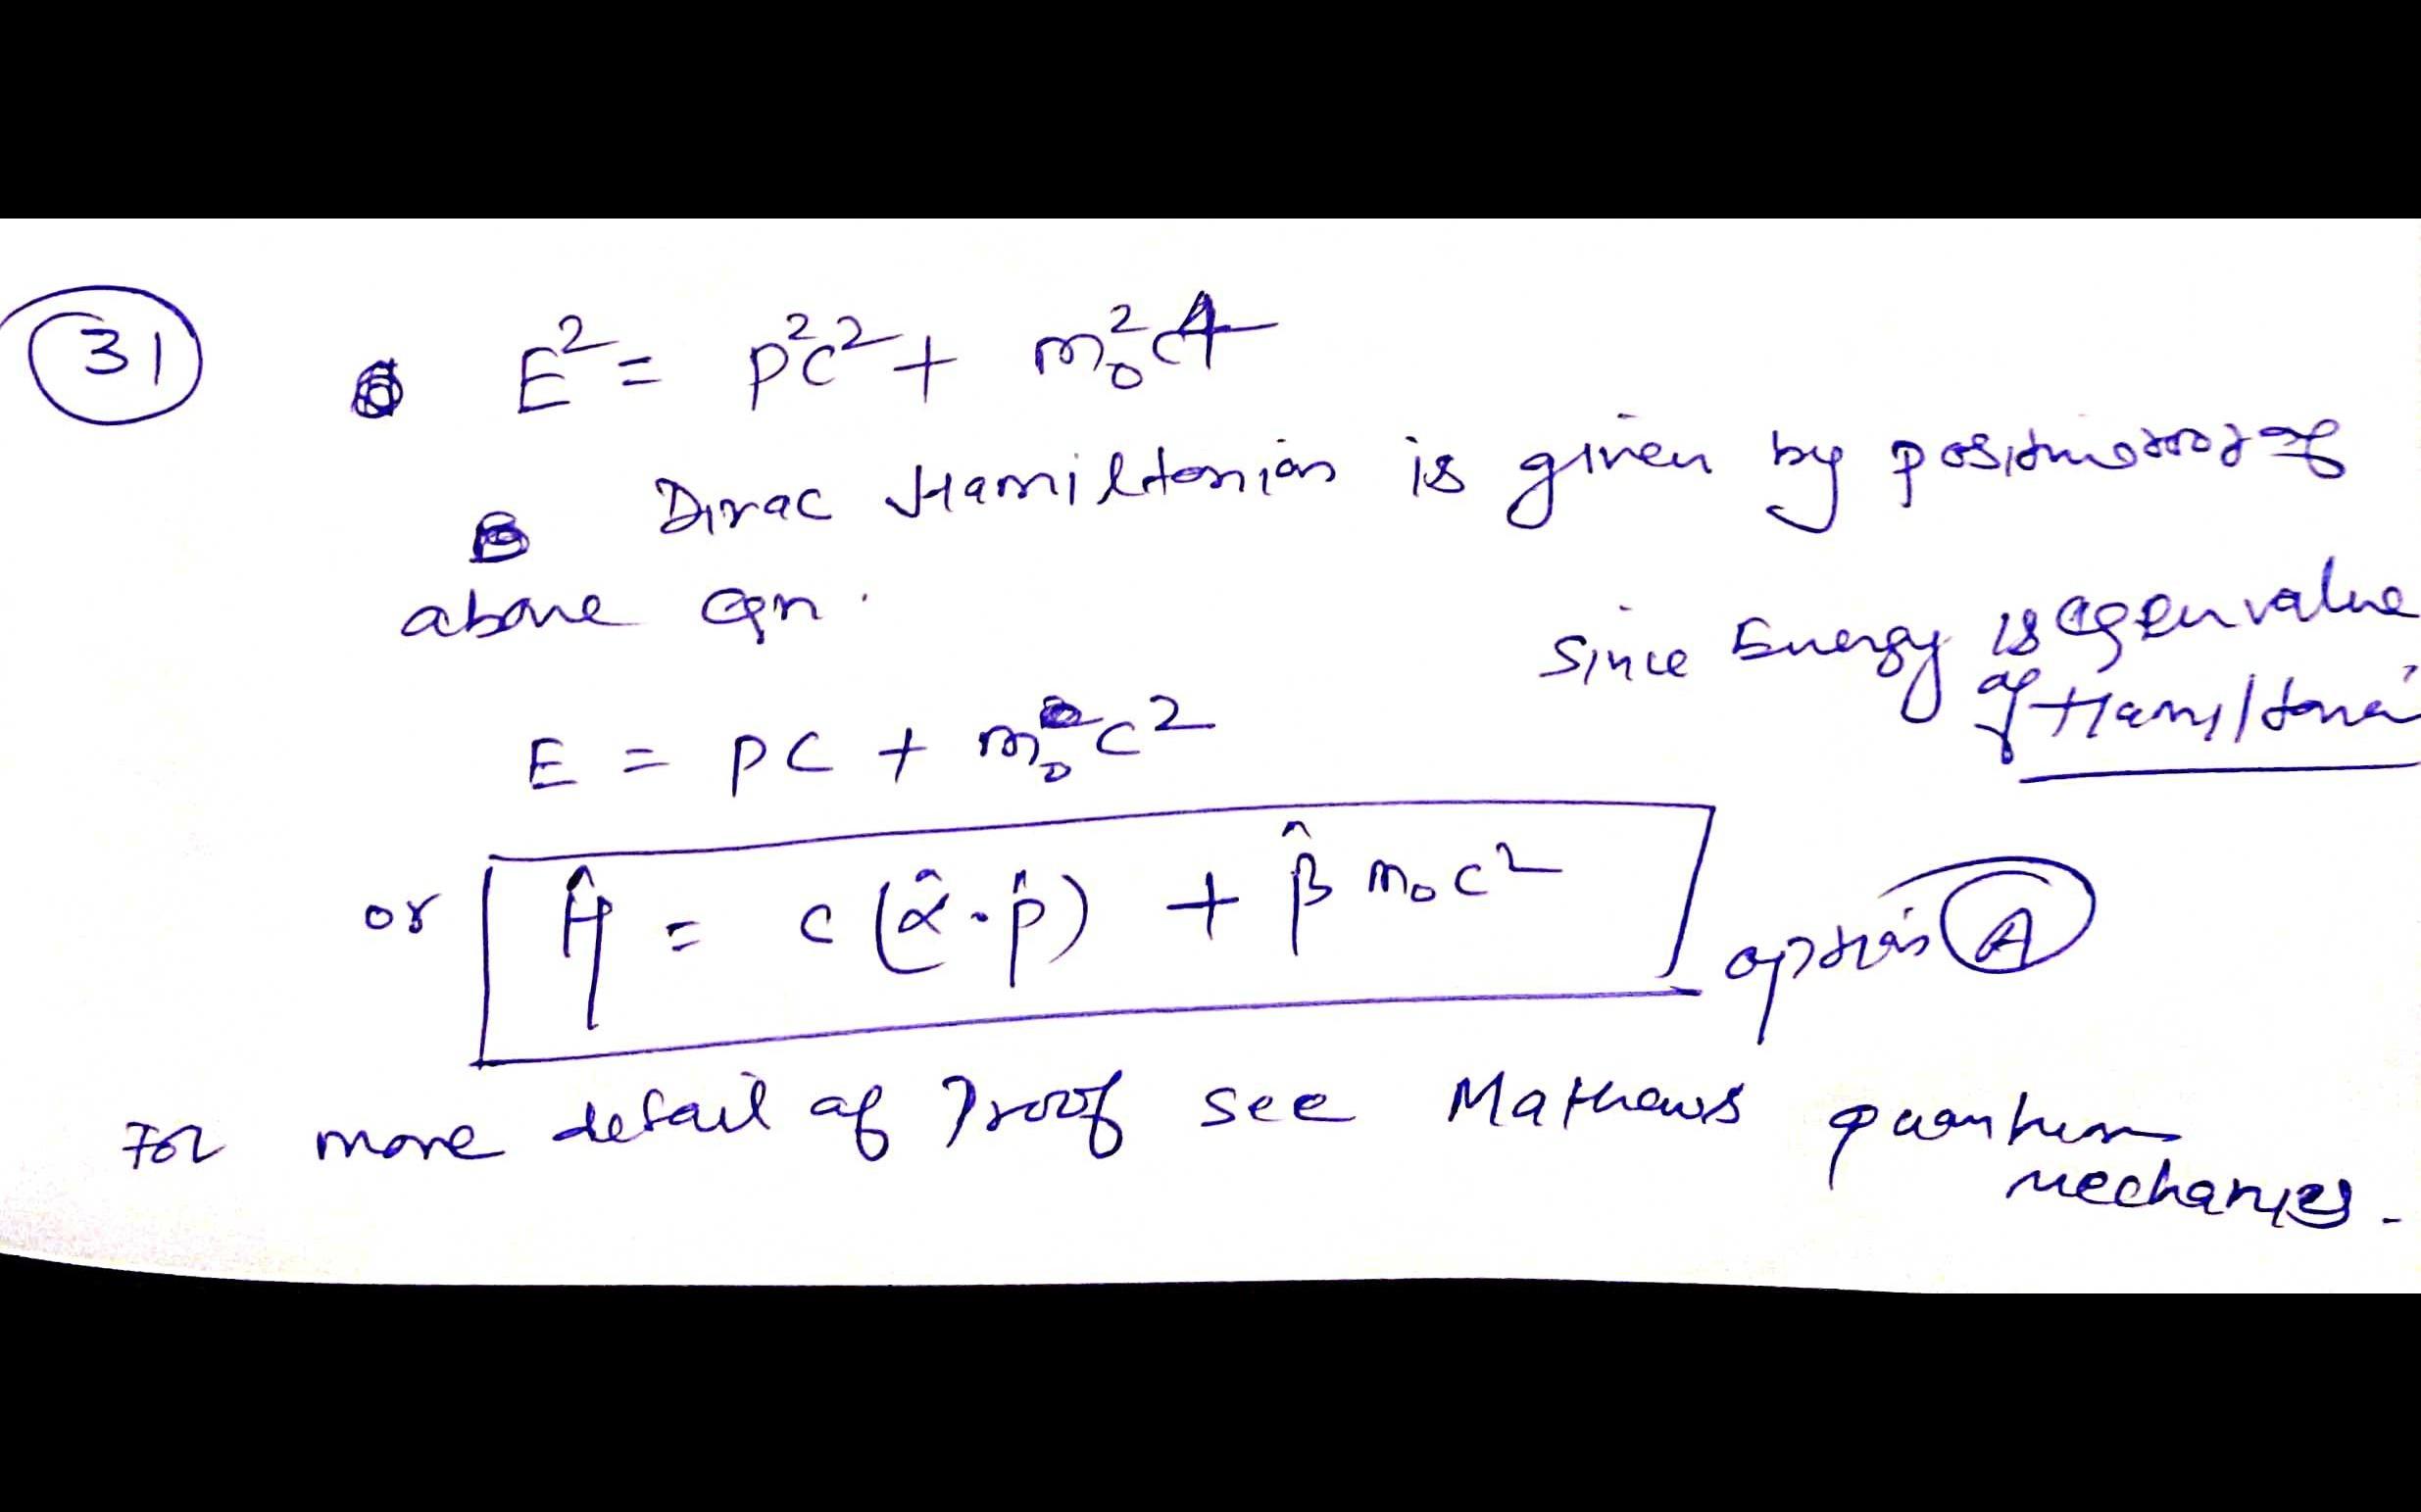 31
E² = p²c² + m₀²c⁴
Dirac Hamiltonian is given by positive root of
above eqn.
since Energy is eigenvalue
of Hamiltonia
E = pc + m₀c²
or Ĥ = c(α̂·p̂) + β̂ m₀c²
option A
For more detail of Proof see Mathews quantum
mechanics.